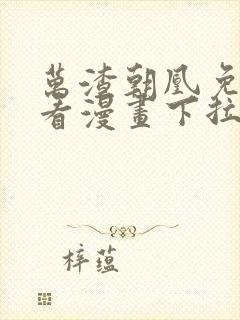 萬渣朝凰免
看漫畫下拉
梓蕴